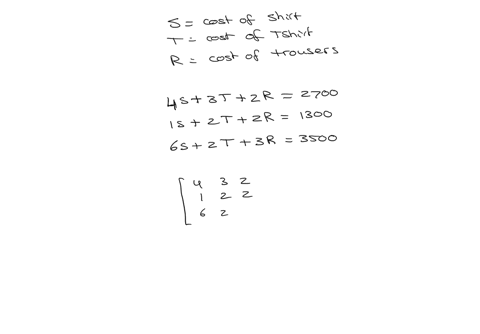 S = cost of shirt
T = cost of Tshirt
R = cost of trousers
4S + 3T + 2R = 2700
1S + 2T + 2R = 1300
6S + 2T + 3R = 3500
[ 4 3 2
1 2 2
6 2